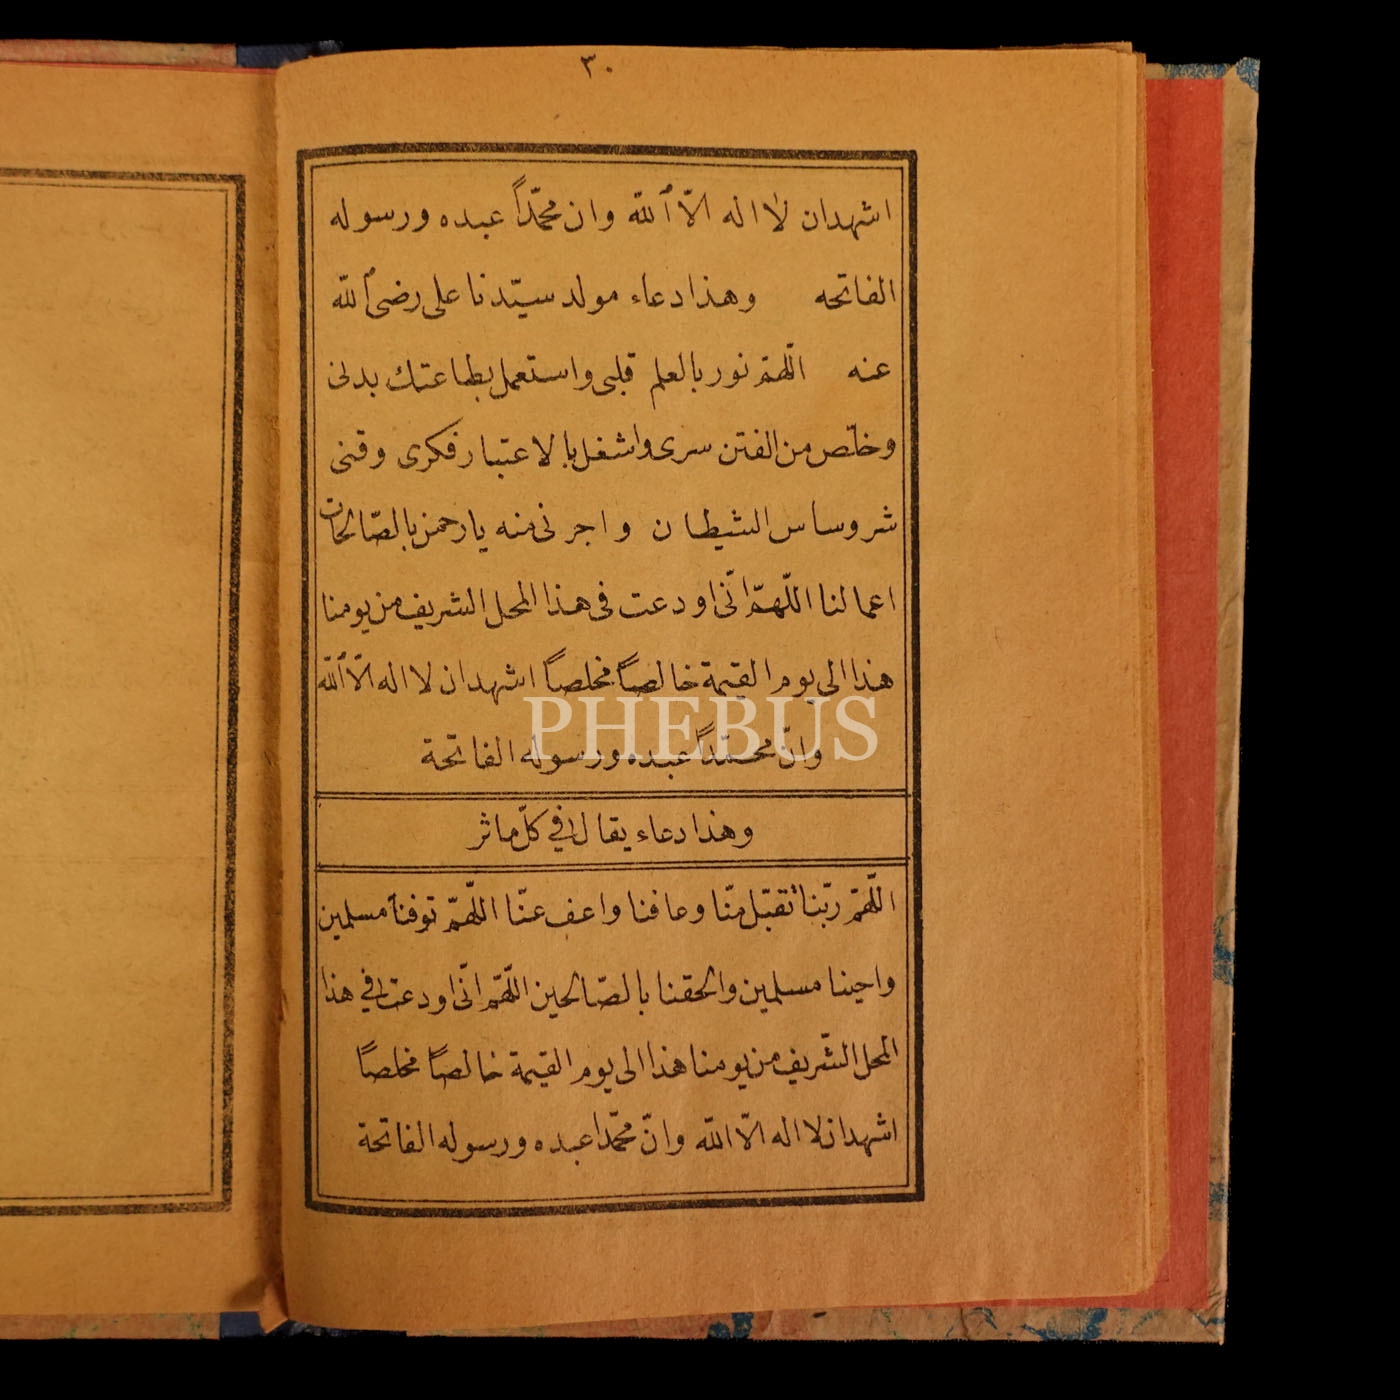 ٣٠
اشهدان لا اله الّا الله وان محمّداً عبده ورسوله
الفاتحه وهذا دعاء مولد سيّدنا على رضى الله
عنه اللّهمّ نور بالعلم قلبى واستعمل بطاعتك بدنى
وخلّص من الفتن سرى واشغل بالاعتبار فكرى وقنى
شر وساس الشيطان واجرنى منه يارحمن بالصّالحات
اعمالنا اللّهمّ انّى اودعت فى هذا المحل الشريف من يومنا
هذا الى يوم القيمة خالصاً مخلصاً اشهدان لا اله الّا الله
وانّ محمّداً عبده ورسوله الفاتحة
وهذا دعاء يقال فى كلّ ماثر
اللّهمّ ربّنا تقبّل منّا وعافنا واعف عنّا اللّهمّ توفنا مسلمين
واحينا مسلمين والحقنا بالصّالحين اللّهمّ انّى اودعت فى هذا
المحل الشّريف من يومنا هذا الى يوم القيمة خالصاً مخلصاً
اشهدان لا اله الّا الله وانّ محمّدا عبده ورسوله الفاتحة
PHEBUS